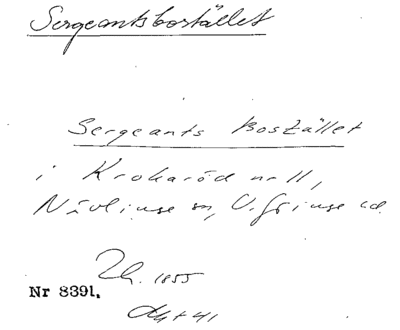 Sergeantsbostället
Sergeants Bostället
i Krokaröd nr 11,
Nävlinge sn, V. Göinge hd.
Lh. 1855
Nr 8391.